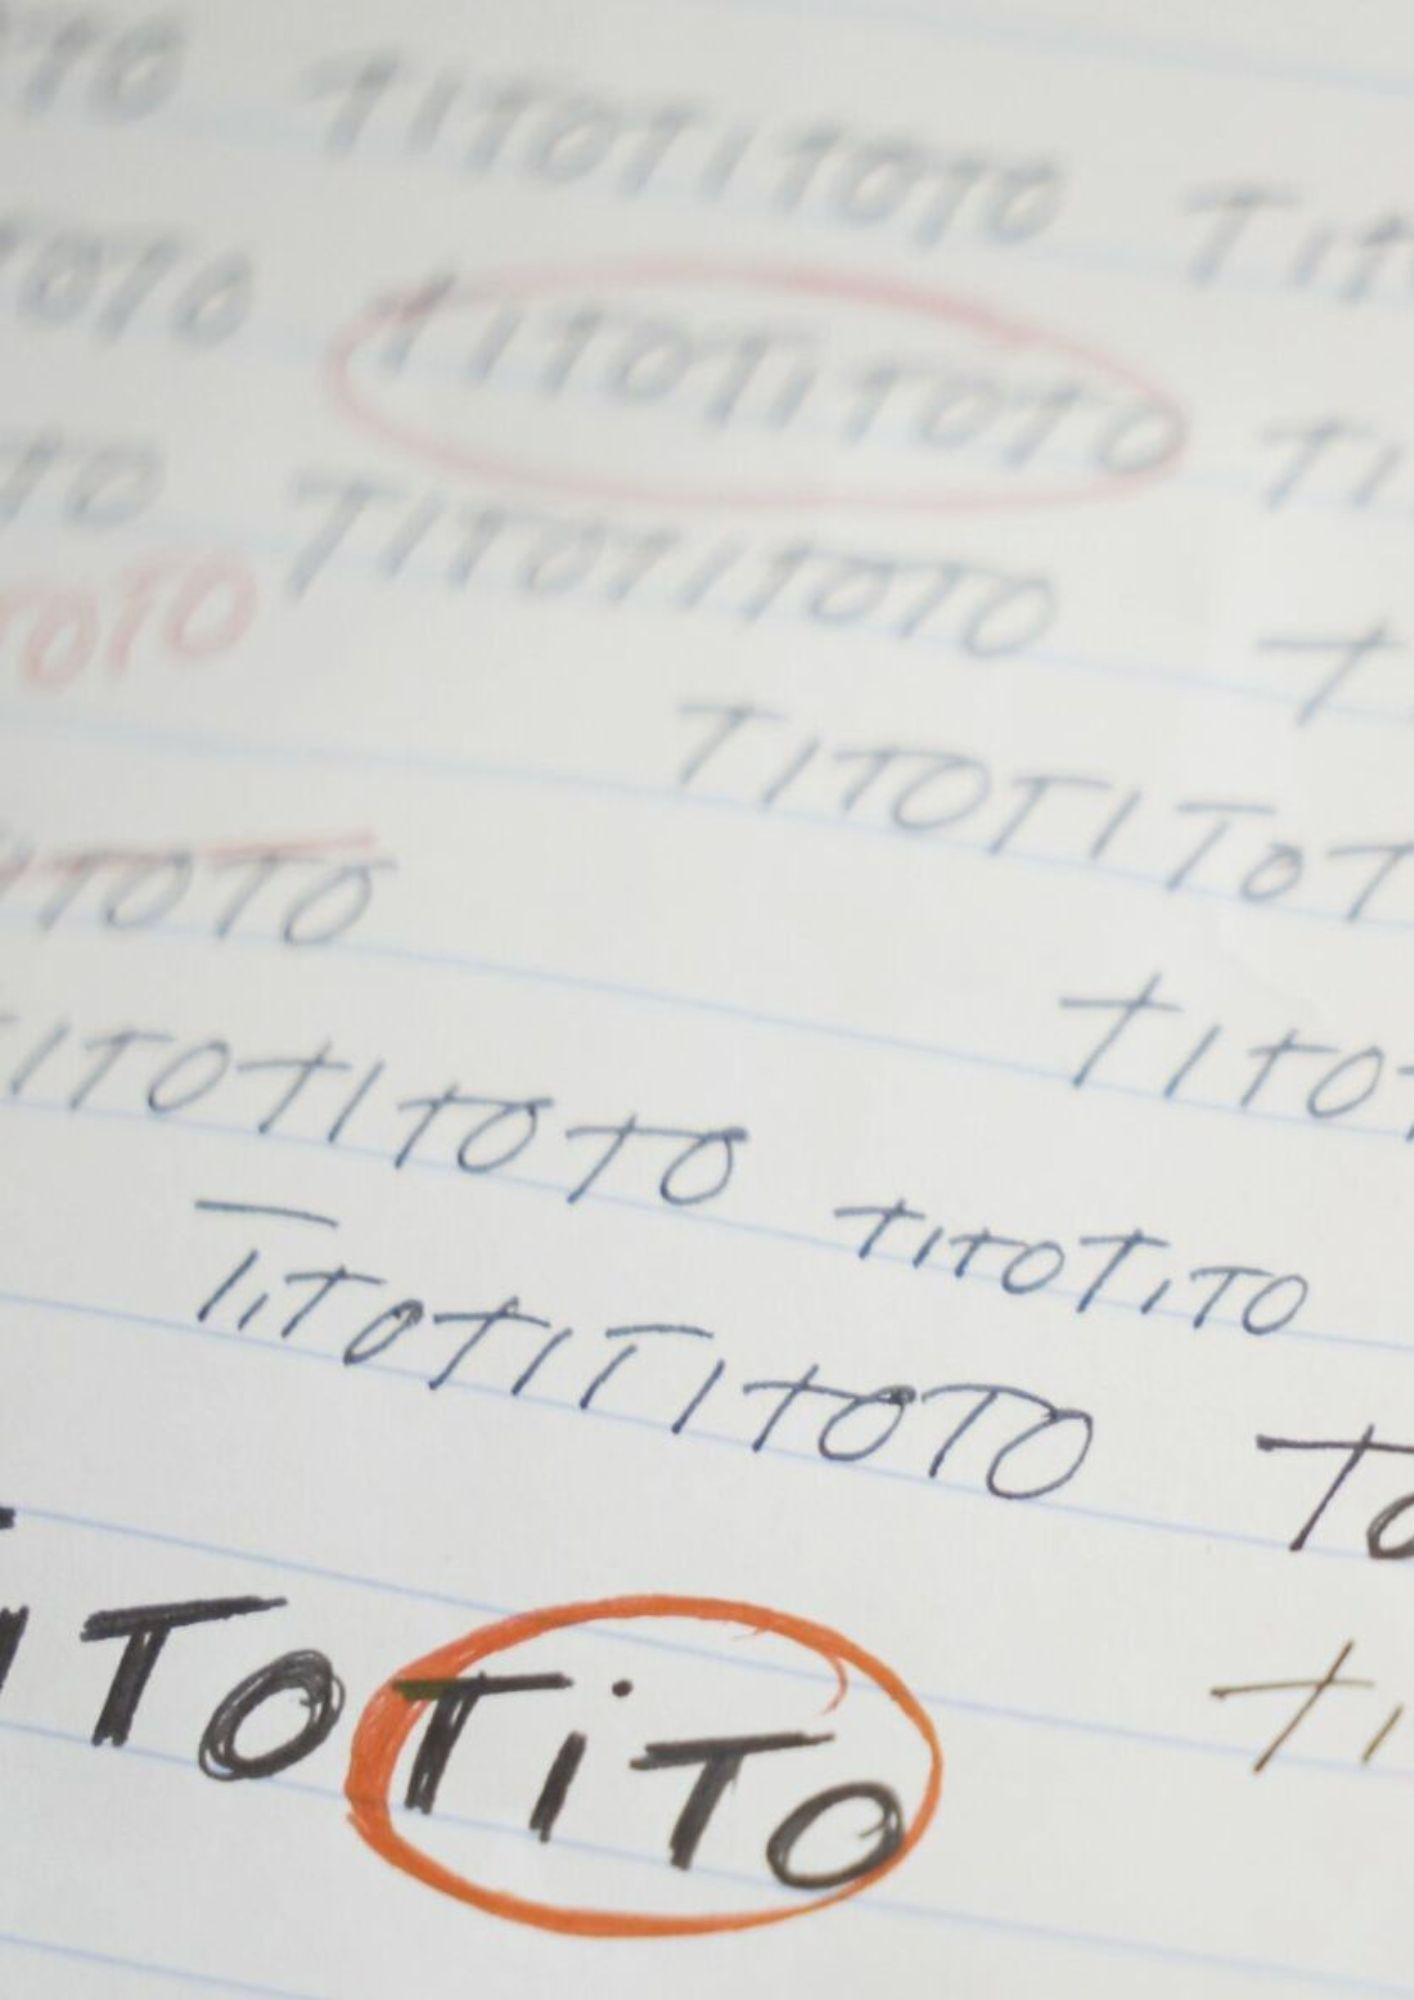 TO TITOTITOTO TITO
TOTO TITOTITOTO TI
TO TITOTITOTO T
TOTO
TITOTITOT
ITOTO
TITOT
TITOTITOTO TITOTITO
TITOTITITOTO TO
ITOTiTO
TI